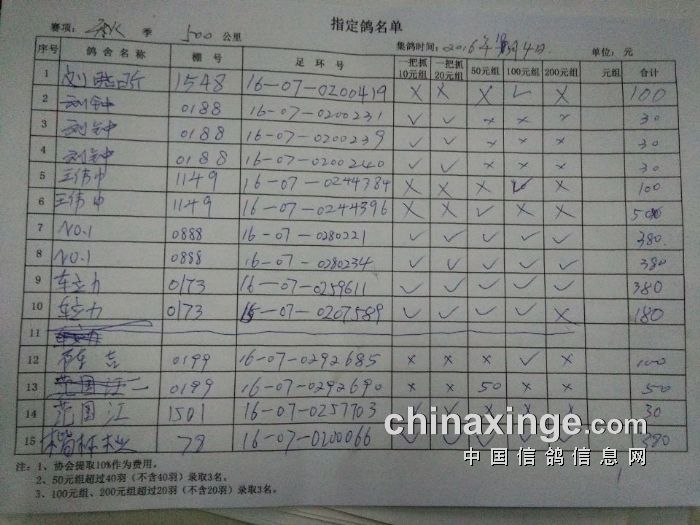 指定鸽名单
赛项: 秋 季 500 公里 集鸽时间: 2016年 月4日 单位: 元
序号 鸽舍名称 棚号 足环号 一把抓10元组 一把抓20元组 50元组 100元组 200元组 元组 合计
1 刘 1548 16-07-0200419 × × × ✓ × 100
2 刘钟 0188 16-07-0200231 ✓ ✓ × × × 30
3 刘钟 0188 16-07-0200239 ✓ ✓ × × × 30
4 刘钟 0188 16-07-0200240 ✓ ✓ × × × 30
5 王伟中 1149 16-07-0244384 × × × ✓ × 100
6 王伟中 1149 16-07-0244396 × × ✓ × × 50
7 NO.1 0888 16-07-0280221 ✓ ✓ ✓ ✓ ✓ 380
8 NO.1 0888 16-07-0280234 ✓ ✓ ✓ ✓ ✓ 380
9 车立力 0173 16-07-0259611 ✓ ✓ ✓ ✓ ✓ 380
10 车立力 0173 15-07-0207589 ✓ ✓ ✓ ✓ × 180
11
12 吉 0199 16-07-0292685 × × × ✓ × 100
13 范国江 0199 16-07-0292690 × × 50 × × 50
14 范国江 1501 16-07-0257703 ✓ ✓ × × × 30
15 楷林木业 79 16-07-0200066 ✓ ✓ ✓ ✓ ✓ 380
chinaxinge.com
中国信鸽信息网
注: 1、协会提取10%作为费用。
2、50元组超过40羽（不含40羽）录取3名。
3、100元组、200元组超过20羽（不含20羽）录取3名。
1